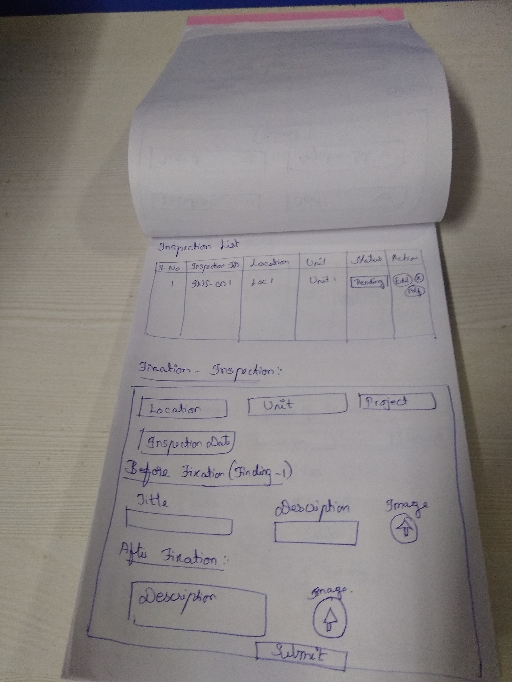 Inspection List
S. No Inspection ID Location Unit Status Action
1 INS-001 Loc 1 Unit 1 Pending Edit
Fixation - Inspection:
Location Unit Project
Inspection Date
Before Fixation (Finding-1)
Title Description Image
After Fixation:
Description Image.
Submit